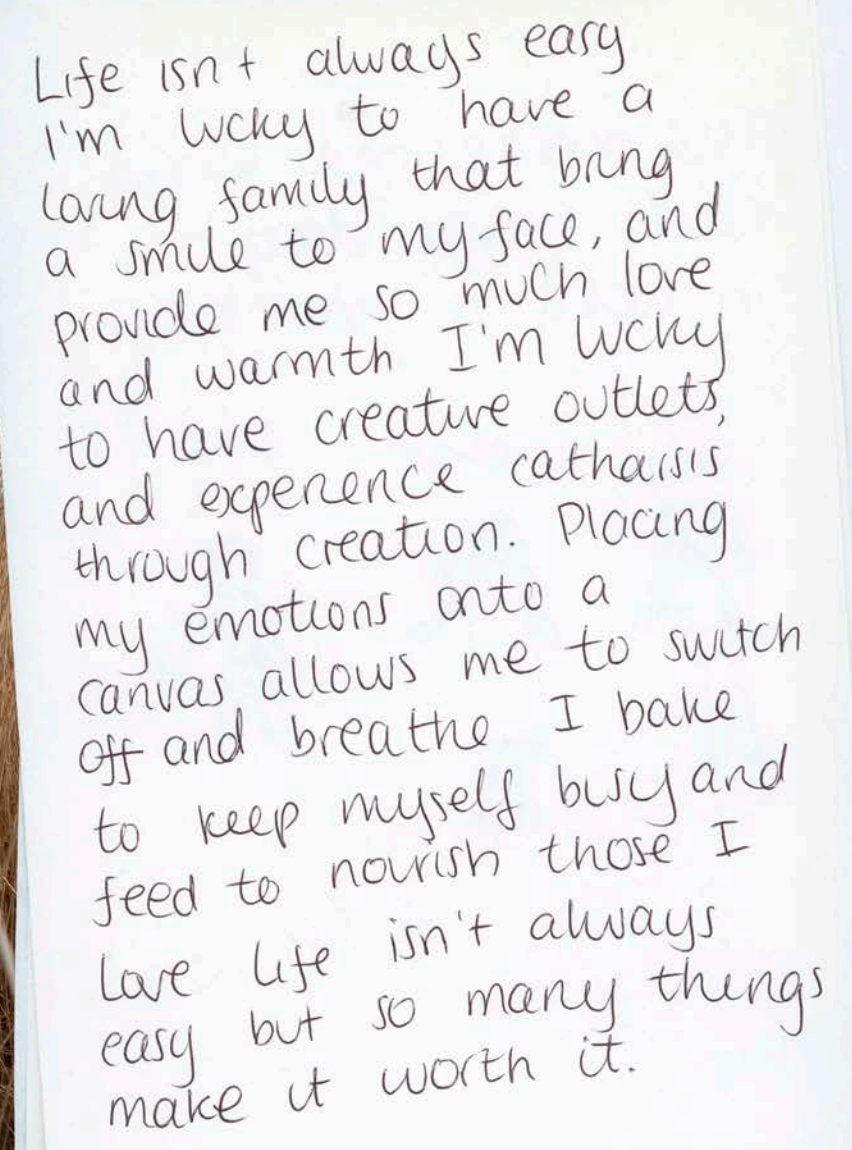 Life isn't always easy
I'm lucky to have a
loving family that bring
a smile to my face, and
provide me so much love
and warmth I'm lucky
to have creative outlets,
and experience catharsis
through creation. Placing
my emotions onto a
canvas allows me to switch
off and breathe I bake
to keep myself busy and
feed to nourish those I
love life isn't always
easy but so many things
make it worth it.